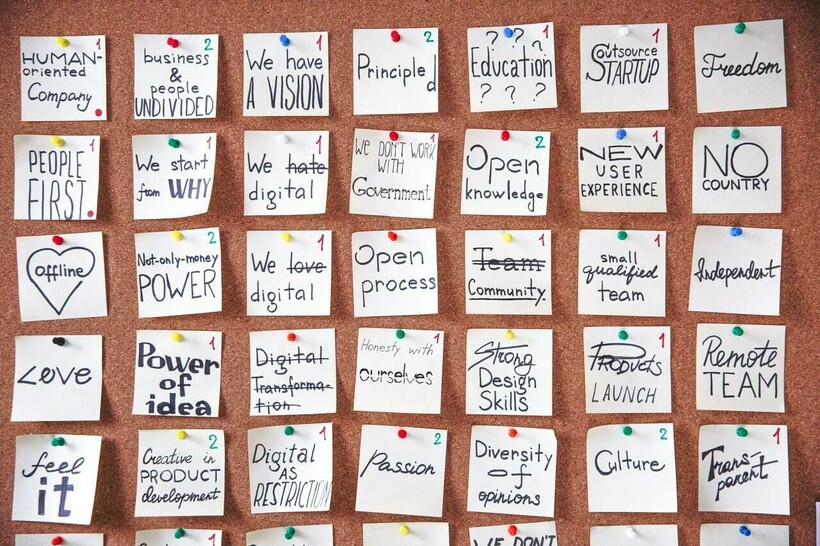 HUMAN- 1
oriented
Company
business 2
&
people
UNDIVIDED
We have 1
A VISION
Principled 2
? ? ? 1
Education
? ? ?
Outsource 1
STARTUP
Freedom
PEOPLE 1
FIRST
We start 1
from WHY
We hate 1
digital
WE DON'T WORK 1
WITH
Government
Open 2
knowledge
NEW 1
USER
EXPERIENCE
NO
COUNTRY
offline
Not-only-money 2
POWER
We love 1
digital
Open 1
process
Team 1
Community
small 1
qualified
team
Independent
Love
Power 1
of
idea
Digital
Transforma-
tion
Honesty with 1
ourselves
Strong
Design
Skills
PRODUCTS 1
LAUNCH
Remote
TEAM
feel
it
Creative in 2
PRODUCT
development
Digital 1
AS
RESTRICTION
Passion 2
Diversity
of
opinions
Culture 2
Trans- 1
parent
WE DON'T